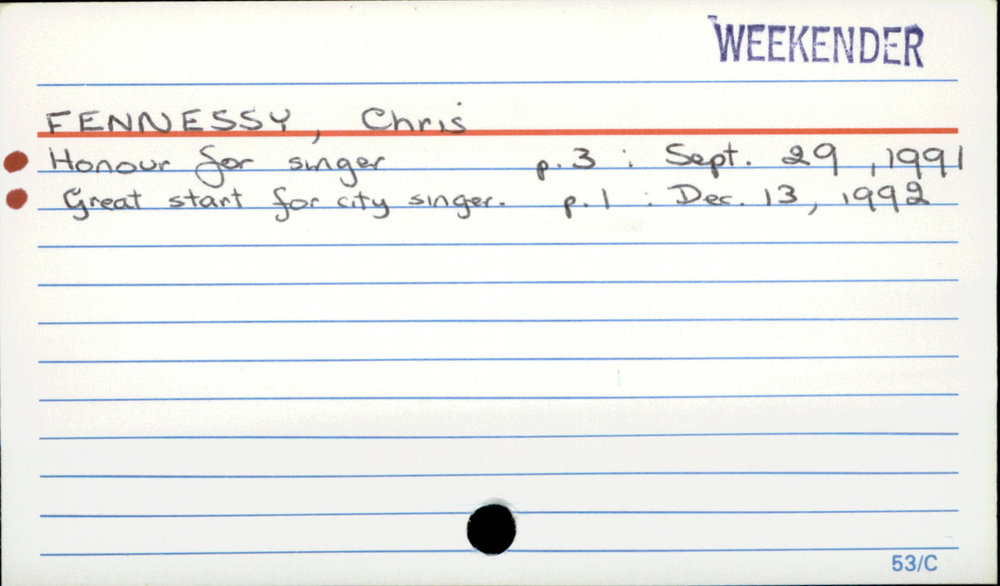 WEEKENDER
FENNESSY, Chris
Honour for singer p. 3 : Sept. 29, 1991
Great start for city singer. p. 1 : Dec. 13, 1992
53/C